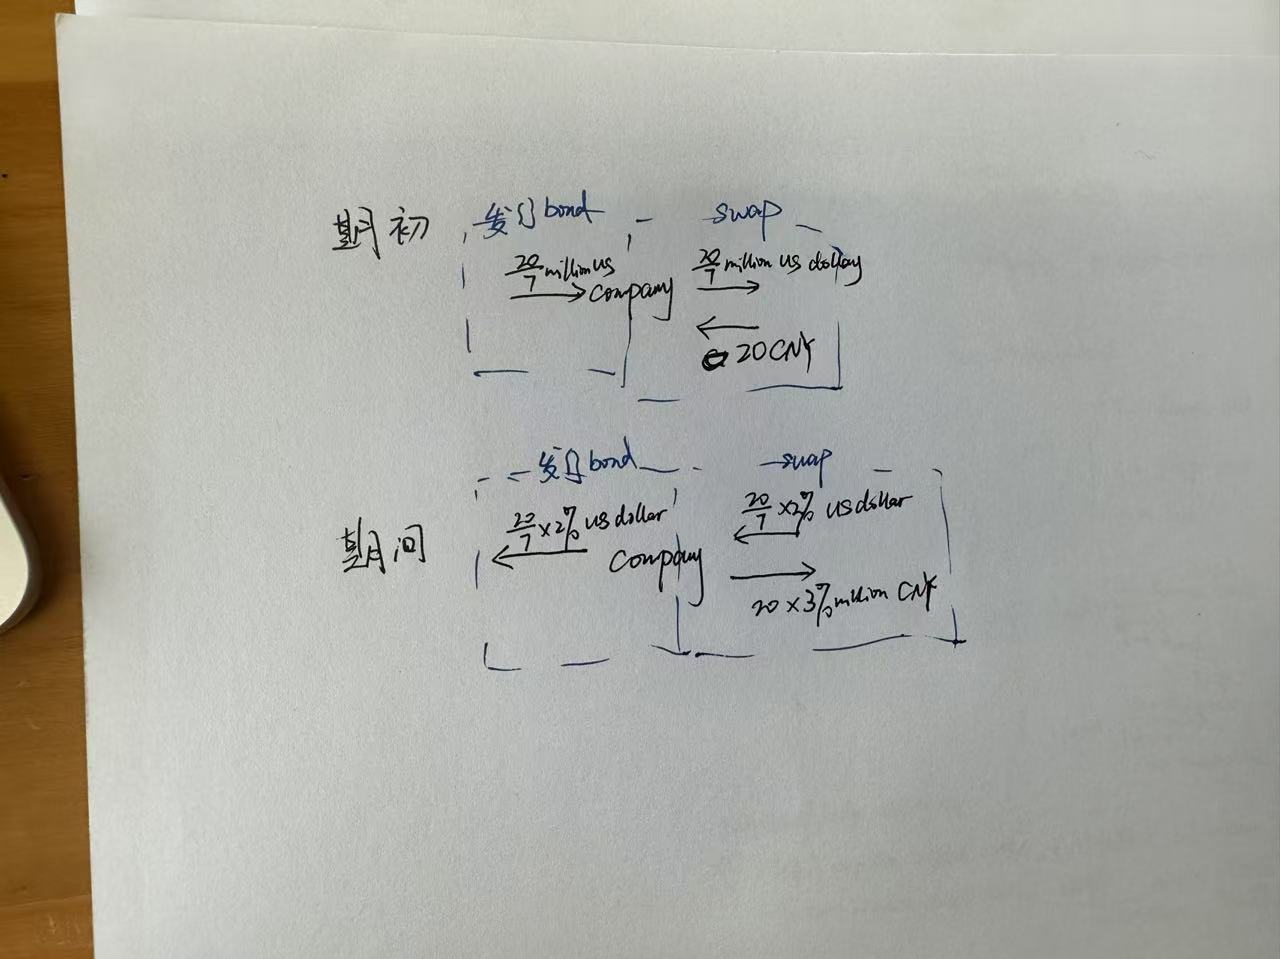 期初 发行bond swap
20/7 million US company 20/7 million US dollar
20 CNY
发行bond swap
期间 20/7 ×2% US dollar company 20/7 ×2% US dollar
20 ×3% million CNY